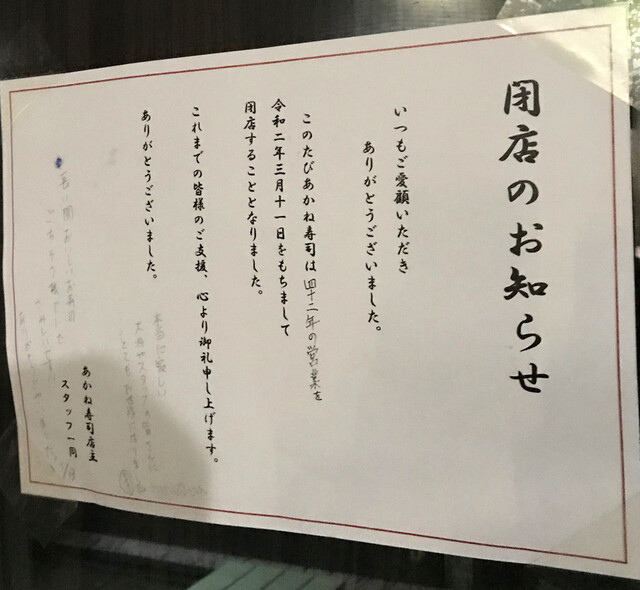 閉店のお知らせ
いつもご愛顧いただき
ありがとうございました。
このたびあかね寿司は四十二年の営業を
令和二年三月十一日をもちまして
閉店することとなりました。
これまでの皆様のご支援、心より御礼申し上げます。
ありがとうございました。
本当に寂しい
長い間おいしいお寿司
ごちそう様でした
あかね寿司店主
スタッフ一同